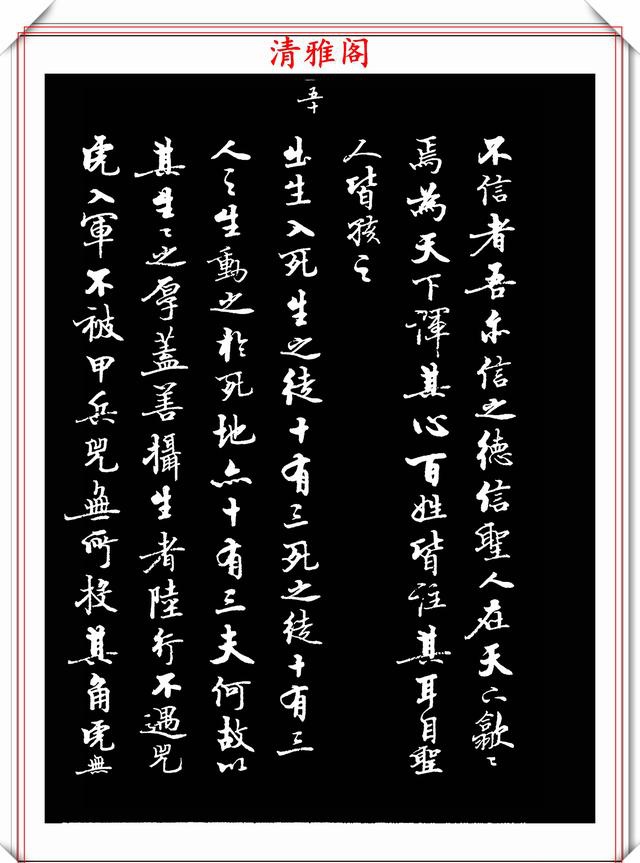 清雅阁
五十
不信者吾亦信之德信聖人在天下歙〻
焉為天下渾其心百姓皆注其耳目聖
人皆孩之
出生入死生之徒十有三死之徒十有三
人之生動之於死地亦十有三夫何故以
其生〻之厚蓋善攝生者陸行不遇兕
虎入軍不被甲兵兕無所投其角虎無